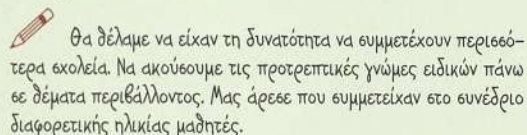 Θα θέλαμε να είχαν τη δυνατότητα να συμμετέχουν περισσό-
τερα σχολεία. Να ακούσουμε τις προτρεπτικές γνώμες ειδικών πάνω
σε θέματα περιβάλλοντος. Μας άρεσε που συμμετείχαν στο συνέδριο
διαφορετικής ηλικίας μαθητές.